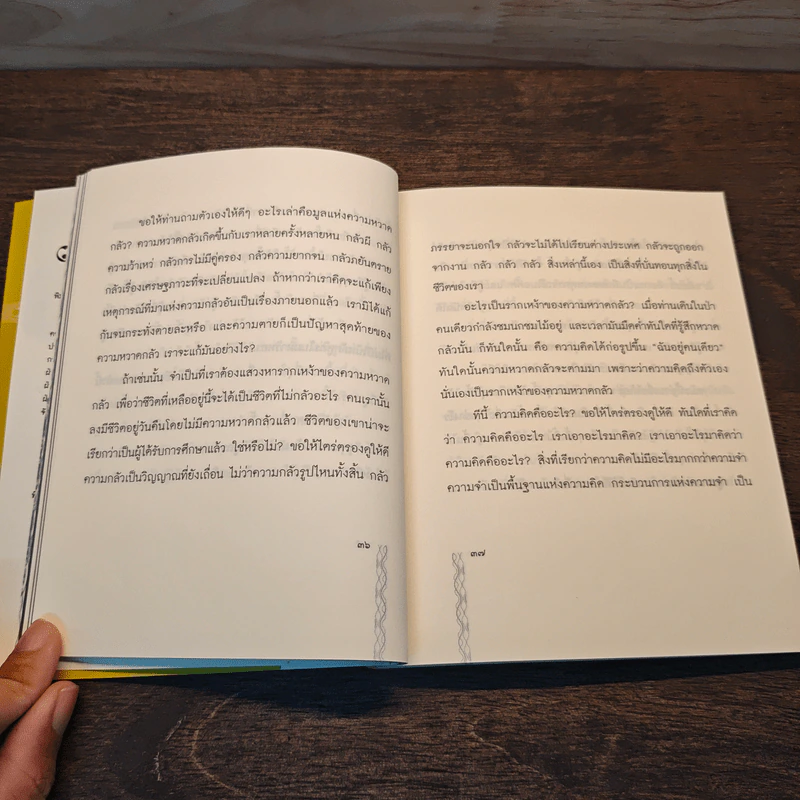 ขอให้ท่านถามตัวเองให้ดีๆ อะไรเล่าคือมูลแห่งความหวาด
กลัว? ความหวาดกลัวเกิดขึ้นกับเราหลายครั้งหลายหน กลัวผี กลัว
ความว้าเหว่ กลัวการไม่มีคู่ครอง กลัวความยากจน กลัวภยันตราย
กลัวเรื่องเศรษฐภาวะที่จะเปลี่ยนแปลง ถ้าหากว่าเราคิดจะแก้เพียง
เหตุการณ์ที่มาแห่งความกลัวอันเป็นเรื่องภายนอกแล้ว เรามิได้แก้
กันจนกระทั่งตายละหรือ และความตายก็เป็นปัญหาสุดท้ายของ
ความหวาดกลัว เราจะแก้มันอย่างไร?
ถ้าเช่นนั้น จำเป็นที่เราต้องแสวงหารากเหง้าของความหวาด
กลัว เพื่อว่าชีวิตที่เหลืออยู่นี้จะได้เป็นชีวิตที่ไม่กลัวอะไร คนเรานั้น
ลงมีชีวิตอยู่วันคืนโดยไม่มีความหวาดกลัวแล้ว ชีวิตของเขาน่าจะ
เรียกว่าเป็นผู้ได้รับการศึกษาแล้ว ใช่หรือไม่? ขอให้ไตร่ตรองดูให้ดี
ความกลัวเป็นวิญญาณที่ยังเถื่อน ไม่ว่าความกลัวรูปไหนทั้งสิ้น กลัว
๓๖
ภรรยาจะนอกใจ กลัวจะไม่ได้ไปเรียนต่างประเทศ กลัวจะถูกออก
จากงาน กลัว กลัว กลัว สิ่งเหล่านี้เอง เป็นสิ่งที่บั่นทอนทุกสิ่งใน
ชีวิตของเรา
อะไรเป็นรากเหง้าของความหวาดกลัว? เมื่อท่านเดินในป่า
คนเดียวกำลังชมนกชมไม้อยู่ และเวลามันมืดค่ำทันใดที่รู้สึกหวาด
กลัวนั้น ก็ทันใดนั้น คือ ความคิดได้ก่อรูปขึ้น "ฉันอยู่คนเดียว"
ทันใดนั้นความหวาดกลัวจะตามมา เพราะว่าความคิดถึงตัวเอง
นั่นเองเป็นรากเหง้าของความหวาดกลัว
ทีนี้ ความคิดคืออะไร? ขอให้ไตร่ตรองดูให้ดี ทันใดที่เราคิด
ว่า ความคิดคืออะไร เราเอาอะไรมาคิด? เราเอาอะไรมาคิดว่า
ความคิดคืออะไร? สิ่งที่เรียกว่าความคิดไม่มีอะไรมากกว่าความจำ
ความจำเป็นพื้นฐานแห่งความคิด กระบวนการแห่งความจำ เป็น
๓๗